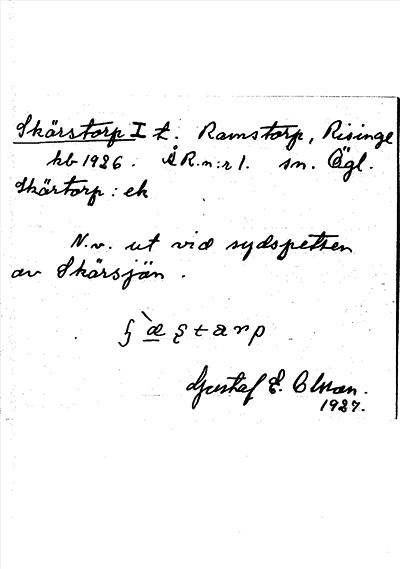 Skärstorp I t. Ramstorp, Risinge
kb 1926. ÅR.n:r 1. sn. Ögl.
Skärtorp: ek
N.v. ut vid sydspetsen
av Skärsjön.
Gustaf E. Olson.
1927.